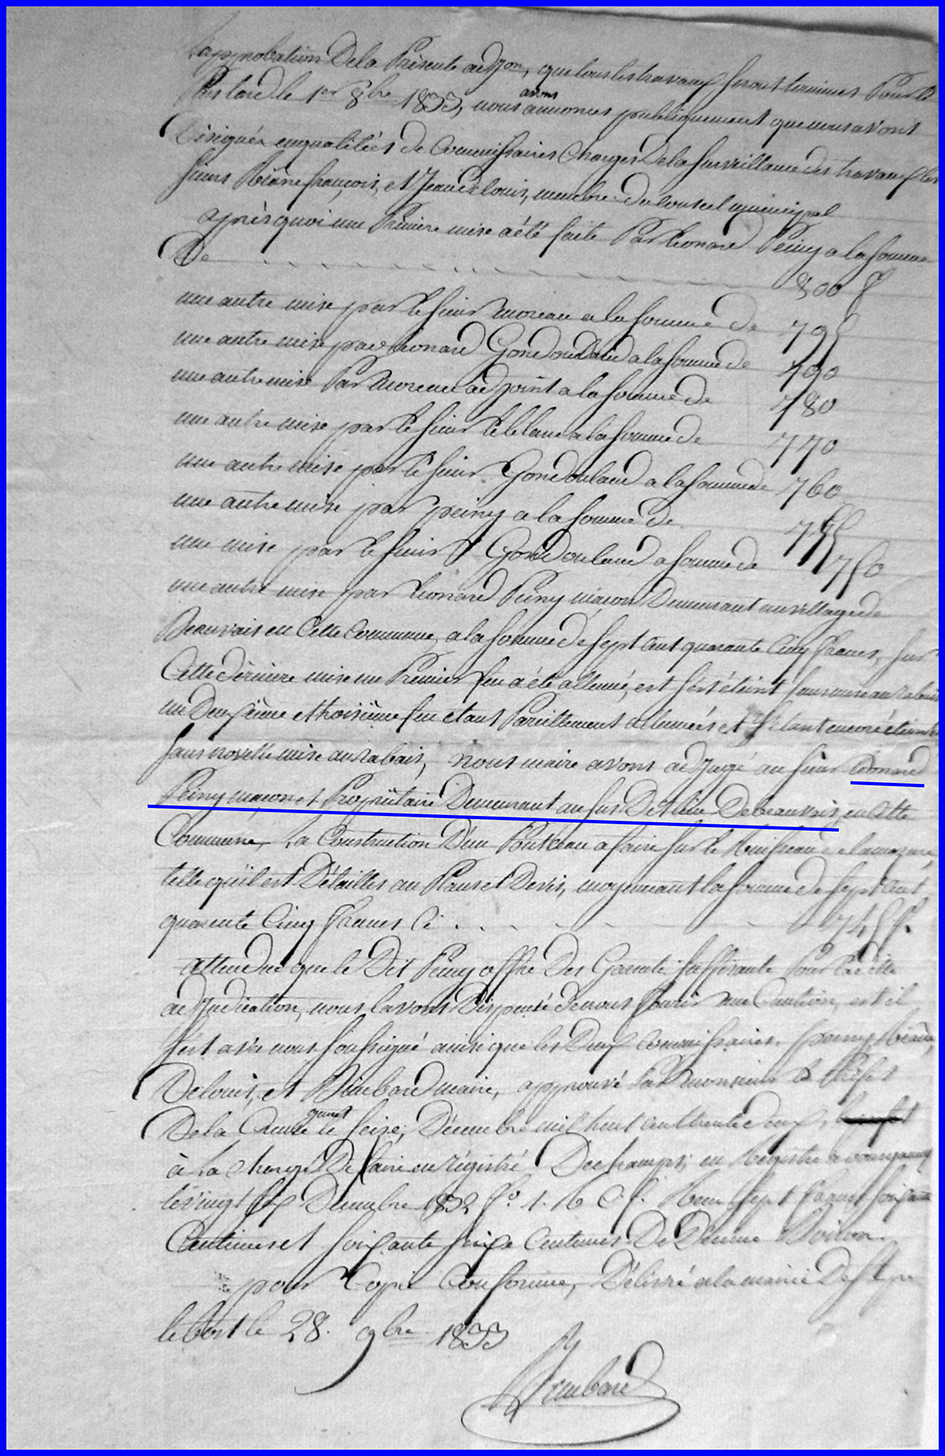 l'approbation De la Présente adjon, que tous les travaux seront terminés Pour le
Plus tard le 1er 8bre 1833, nous avons annoncés publiquement que nous avont
Désignés en qualités de Commissaires Charges De la surveillance des travaux les
sieurs Pierre françois, et Jean delouis, membre du Conseil municipal
après quoi une Première mise a été faite Par Leonard Peiny a la somme
De 800 f
une autre mise par le sieur moreau a la somme De 795
une autre mise par Leonard Gondouland a la somme de 790
une autre mise Par moreau adjoint a la somme de 780
une autre mise par le sieur leblanc a la somme de 770
une autre mise par le sieur Gondouland a la somme de 760
une autre mise par peiny a la somme de 755
une mise par le sieur Gondouland a somme de 750
une autre mise par Leonard Peiny maçon Demeurant au village de
Beauvais en Cette Commune, a la somme de sept cent quarante Cinq francs, sur
Cette dernière mise un Premier feu a été allumé, est s'est éteint sans mise au rabais
un Deuxième et troisième feu etant Pareillement allumés et s'etant encore éteints
sans novelle mise au rabais, nous maire avons adjugé au sieur Leonard
Peiny maçon et Propriétaire Demeurant au sus Dit lieu De beauvais, en Cette
Commune, la Construction D'un Ponteau a faire sur le Ruisseau de lamazure
telle qu'il est Détailles au Plans et Devis, moyennant la somme de sept Cent
quarente Cinq francs Ci 745 f.
attendue que le Dit Peiny offre Des Garentie suffisante Pour la dite
adjudication, nous lavons Dispensé de nous fournir une Caution, est il
s'est avec nous soussigné ainsi que les Deux Commissaires. peiny Pierre,
Delouis, et Rimbaud maire, approuvé Par monsieur le Préfet
De la Creuse gueret le seize, Décembre mil huit Cent trente deux,
à la charge De faire enregistré Deschamps, en Régistré a bourganeuf
le vingt six Décembre 1832 f° 1. 16 C. f. Reçu sept francs soixante
Centimes et soixante seize Centimes De Décime
pour Copie Conforme, Délivré a la mairie De St pr
le bost le 28. 9bre 1833
Rimbaud